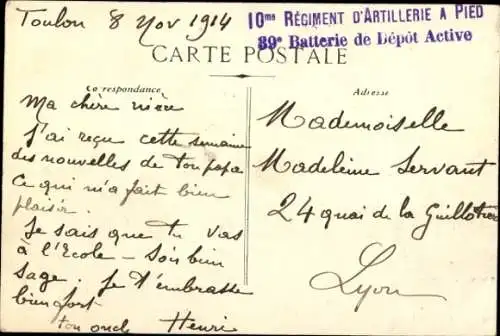 Toulon 8 Nov 1914
10me RÉGIMENT D'ARTILLERIE A PIED
39e Batterie de Dépôt Active
CARTE POSTALE
Correspondance
Adresse
Ma chère nièce
J'ai reçu cette semaine
des nouvelles de ton papa
ce qui m'a fait bien
plaisir.
Je sais que tu vas
à l'Ecole - Sois bien
sage. Je t'embrasse
bien fort
ton oncle Henri
Mademoiselle
Madeleine Servant
24 quai de la Guillotière
Lyon